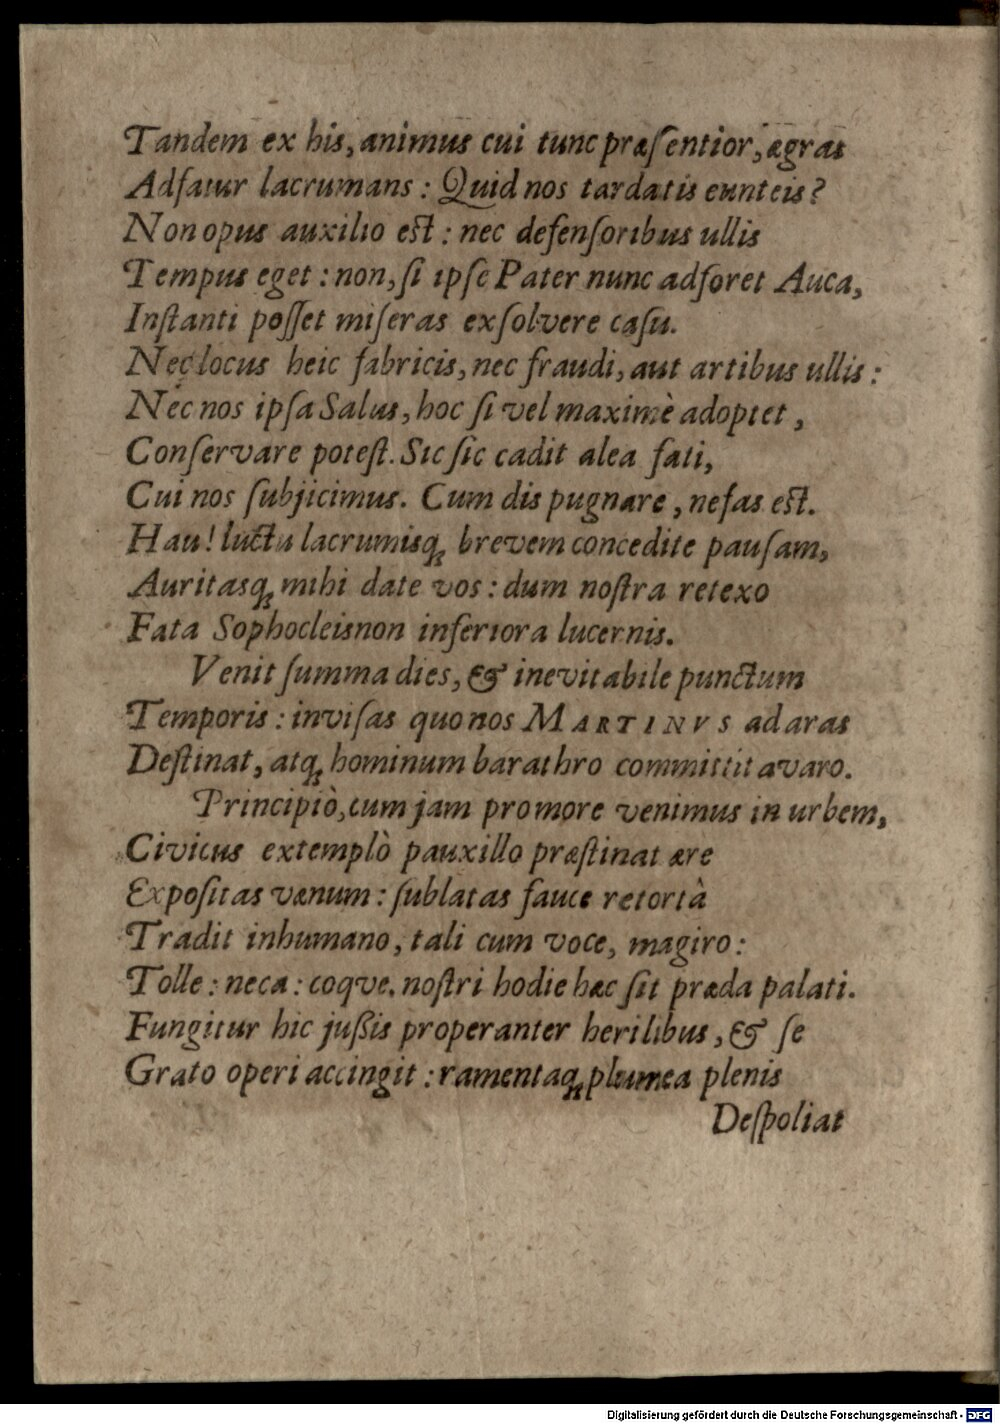 Tandem ex his, animus cui tunc præſentior, ægras
Adfatur lacrumans: Quid nos tardatis eunteis?
Non opus auxilio est: nec defenſoribus ullis
Tempus eget: non, ſi ipſe Pater nunc adforet Auca,
Inſtanti poſſet miſeras exſolvere caſu.
Nec locus heic fabricis, nec fraudi, aut artibus ullis:
Nec nos ipſa Salus, hoc ſi vel maximè adoptet,
Conſervare poteſt. Sic ſic cadit alea fati,
Cui nos ſubjicimus. Cum dis pugnare, nefas est.
Hau! luctu lacrumisq; brevem concedite pauſam,
Auritasq; mihi date vos: dum noſtra retexo
Fata Sophocleis non inferiora lucernis.
Venit ſumma dies, & inevitabile punctum
Temporis: inviſas quo nos MARTINVS ad aras
Deſtinat, atq; hominum barathro committit avaro.
Principiò, cum jam pro more venimus in urbem,
Civicus extemplò pauxillo præſtinat ære
Expoſitas vænum: ſublatas fauce retortà
Tradit inhumano, tali cum voce, magiro:
Tolle: neca: coqve. noſtri hodie hæc ſit præda palati.
Fungitur hic juſsis properanter herilibus, & ſe
Grato operi accingit: ramentaq; plumea plenis
Deſpoliat
Digitalisierung gefördert durch die Deutsche Forschungsgemeinschaft - DFG